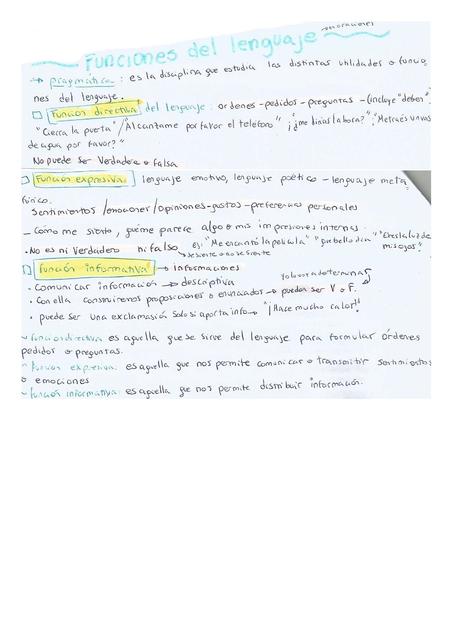 → oraciones
Funciones del lenguaje
→ pragmática: es la disciplina que estudia las distintas utilidades o funcio
nes del lenguaje.
□ Función directiva del lenguaje: ordenes - pedidos - preguntas - (incluye "deben"
"Cierra la puerta" / "Alcanzame por favor el teléfono" "¿me dirías la hora?" "Me traés un vaso
de agua por favor?"
No puede ser Verdadera o falsa
□ Función expresiva: lenguaje emotivo, lenguaje poético - lenguaje meta
fórico.
Sentimientos / emociones / opiniones - gustos - preferencias personales
- Cómo me siento, qué me parece algo o mis impresiones internas.
• No es ni Verdadero ni falso ej: "Me encantó la película" "que bello día" "Eres la luz de
→ se siente o no se siente mis ojos"
□ función informativa → informaciones
• Comunicar información → descriptiva
• Con ella construimos proposiciones o enunciados → pueden ser V o F.
• puede ser una exclamación solo si aporta info → "¡Hace mucho calor!"
~ función directiva es aquella que se sirve del lenguaje para formular órdenes
pedidos o preguntas.
~ función expresiva: es aquella que nos permite comunicar o transmitir sentimientos
o emociones
~ función informativa: es aquella que nos permite distribuir información.